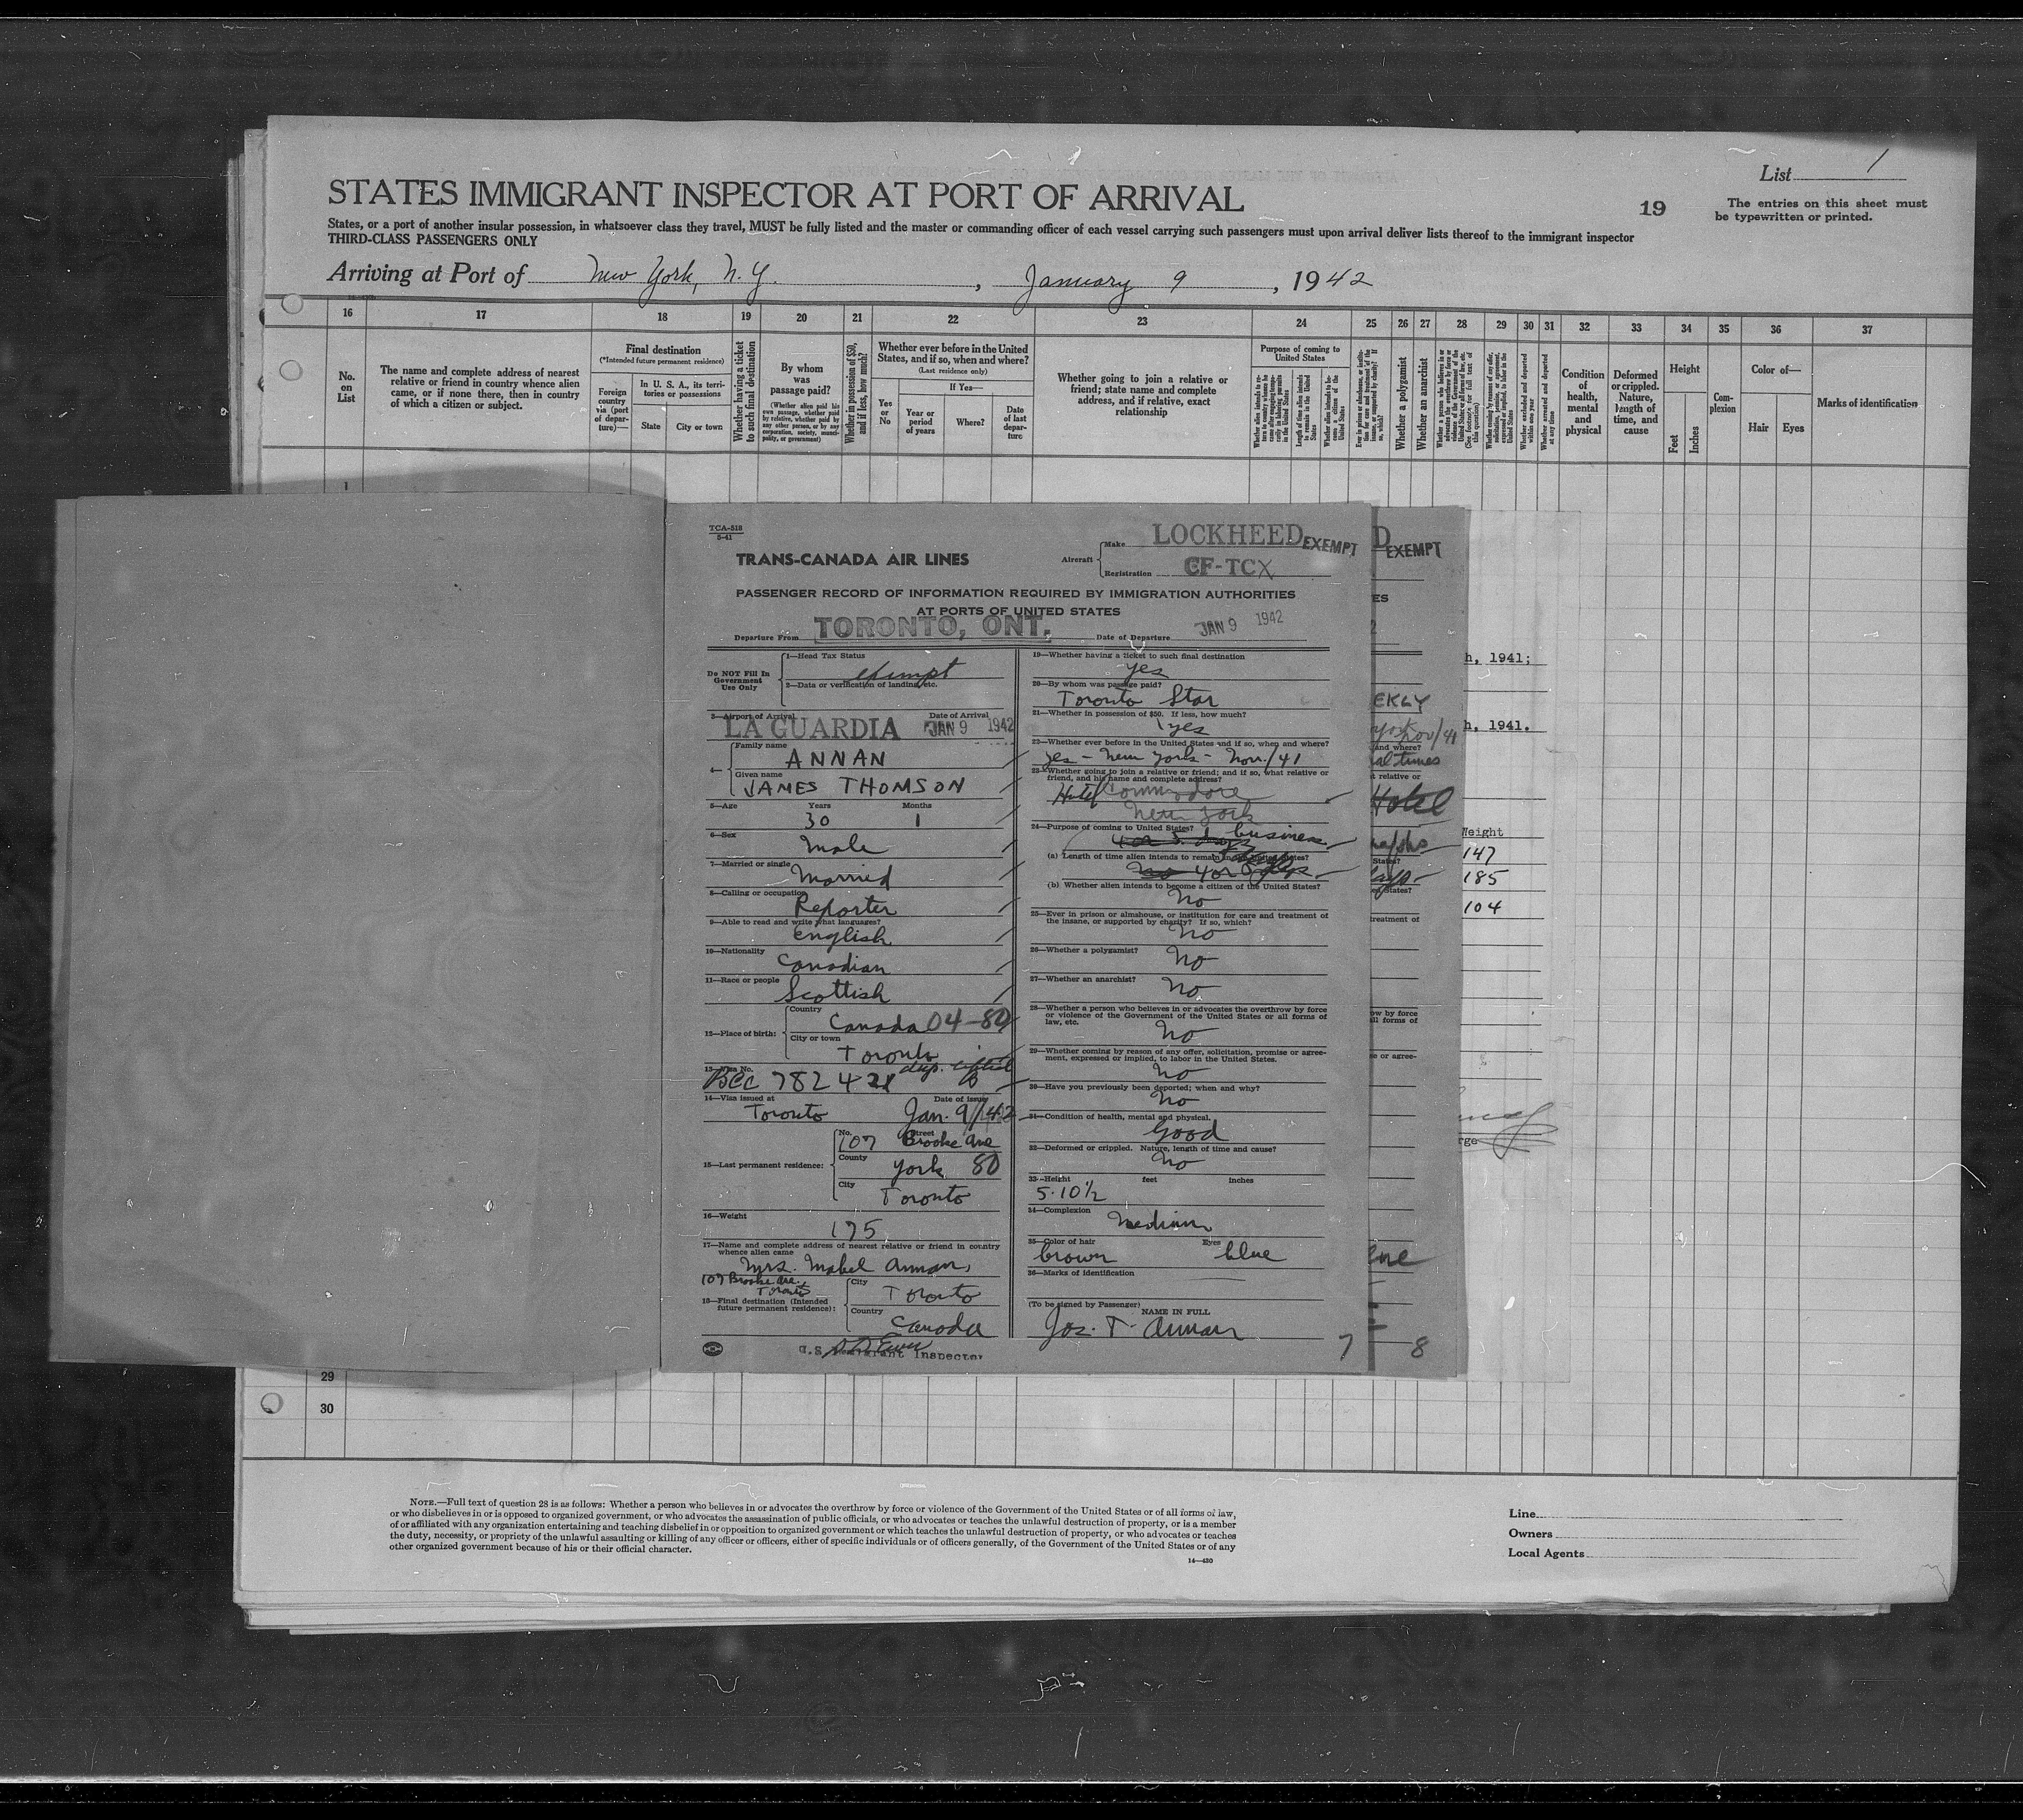 List 1
STATES IMMIGRANT INSPECTOR AT PORT OF ARRIVAL
19
The entries on this sheet must
be typewritten or printed.
States, or a port of another insular possession, in whatsoever class they travel, MUST be fully listed and the master or commanding officer of each vessel carrying such passengers must upon arrival deliver lists thereof to the immigrant inspector
THIRD-CLASS PASSENGERS ONLY
Arriving at Port of New York, N.Y., January 9, 1942
16 17 18 19 20 21 22 23 24 25 26 27 28 29 30 31 32 33 34 35 36 37
No. on List
The name and complete address of nearest relative or friend in country whence alien came, or if none there, then in country of which a citizen or subject.
Final destination
(*Intended future permanent residence)
Foreign country via (port of departure)—
In U. S. A., its territories or possessions
State
City or town
Whether having a ticket to such final destination
By whom was passage paid?
(Whether alien paid his own passage, whether paid by relative, whether paid by any other person, or by any corporation, society, municipality, or government)
Whether in possession of $50, and if less, how much?
Whether ever before in the United States, and if so, when and where?
(Last residence only)
Yes or No
If Yes—
Year or period of years
Where?
Date of last departure
Whether going to join a relative or friend; state name and complete address, and if relative, exact relationship
Purpose of coming to United States
Length of time alien intends to remain in the United States
Whether alien intends to become a citizen of the United States
Whether a polygamist
Whether an anarchist
Whether excluded and deported within one year
Whether arrested and deported at any time
Condition of health, mental and physical
Deformed or crippled. Nature, length of time, and cause
Height
Feet
Inches
Complexion
Color of—
Hair
Eyes
Marks of identification
1
TCA-518
5-41
TRANS-CANADA AIR LINES
Aircraft
Make LOCKHEED EXEMPT
Registration CF-TCX
PASSENGER RECORD OF INFORMATION REQUIRED BY IMMIGRATION AUTHORITIES
AT PORTS OF UNITED STATES
Departure From TORONTO, ONT. Date of Departure JAN 9 1942
Do NOT Fill In
Government
Use Only
1—Head Tax Status
exempt
2—Data or verification of landing, etc.
3—Airport of Arrival Date of Arrival
LA GUARDIA JAN 9 1942
4—
Family name
ANNAN
Given name
JAMES THOMSON
5—Age Years Months
30 1
6—Sex
Male
7—Married or single
Married
8—Calling or occupation
Reporter
9—Able to read and write what languages?
English
10—Nationality
Canadian
11—Race or people
Scottish
12—Place of birth:
Country
Canada 04-80
City or town
Toronto
13—Visa No.
BCC 782421
14—Visa issued at Date of issue
Toronto Jan. 9/42
15—Last permanent residence:
No. Street
107 Brooke Ave
County
York 80
City
Toronto
16—Weight
175
17—Name and complete address of nearest relative or friend in country
whence alien came
Mrs. Mabel Annan,
107 Brooke Ave.,
Toronto
18—Final destination (Intended
future permanent residence):
City
Toronto
Country
Canada
U.S. Immigrant Inspector
19—Whether having a ticket to such final destination
Yes
20—By whom was passage paid?
Toronto Star
21—Whether in possession of $50. If less, how much?
yes
22—Whether ever before in the United States and if so, when and where?
yes - New York - Nov./41
23—Whether going to join a relative or friend; and if so, what relative or
friend, and his name and complete address?
Hotel Commodore
New York
24—Purpose of coming to United States?
4 or 5 days business
(a) Length of time alien intends to remain in the United States?
No 4 or 5 days
(b) Whether alien intends to become a citizen of the United States?
No
25—Ever in prison or almshouse, or institution for care and treatment of
the insane, or supported by charity? If so, which?
No
26—Whether a polygamist?
No
27—Whether an anarchist?
No
28—Whether a person who believes in or advocates the overthrow by force
or violence of the Government of the United States or all forms of
law, etc.
No
29—Whether coming by reason of any offer, solicitation, promise or agree-
ment, expressed or implied, to labor in the United States.
No
30—Have you previously been deported; when and why?
No
31—Condition of health, mental and physical.
Good
32—Deformed or crippled. Nature, length of time and cause?
No
33—Height feet inches
5·10½
34—Complexion
Medium
35—Color of hair Eyes
brown blue
36—Marks of identification
(To be signed by Passenger)
NAME IN FULL
Jas. T. Annan
7
D EXEMPT
ES
2
EKLY
Nov/41
and where?
al times
t relative or
Hotel
States?
ed States?
treatment of
ow by force
ll forms of
e or agree-
8
h, 1941;
h, 1941.
Weight
147
185
104
rge
29
30
NOTE.—Full text of question 28 is as follows: Whether a person who believes in or advocates the overthrow by force or violence of the Government of the United States or of all forms of law,
or who disbelieves in or is opposed to organized government, or who advocates the assassination of public officials, or who advocates or teaches the unlawful destruction of property, or is a member
of or affiliated with any organization entertaining and teaching disbelief in or opposition to organized government or which teaches the unlawful destruction of property, or who advocates or teaches
the duty, necessity, or propriety of the unlawful assaulting or killing of any officer or officers, either of specific individuals or of officers generally, of the Government of the United States or of any
other organized government because of his or their official character.
14—430
Line
Owners
Local Agents